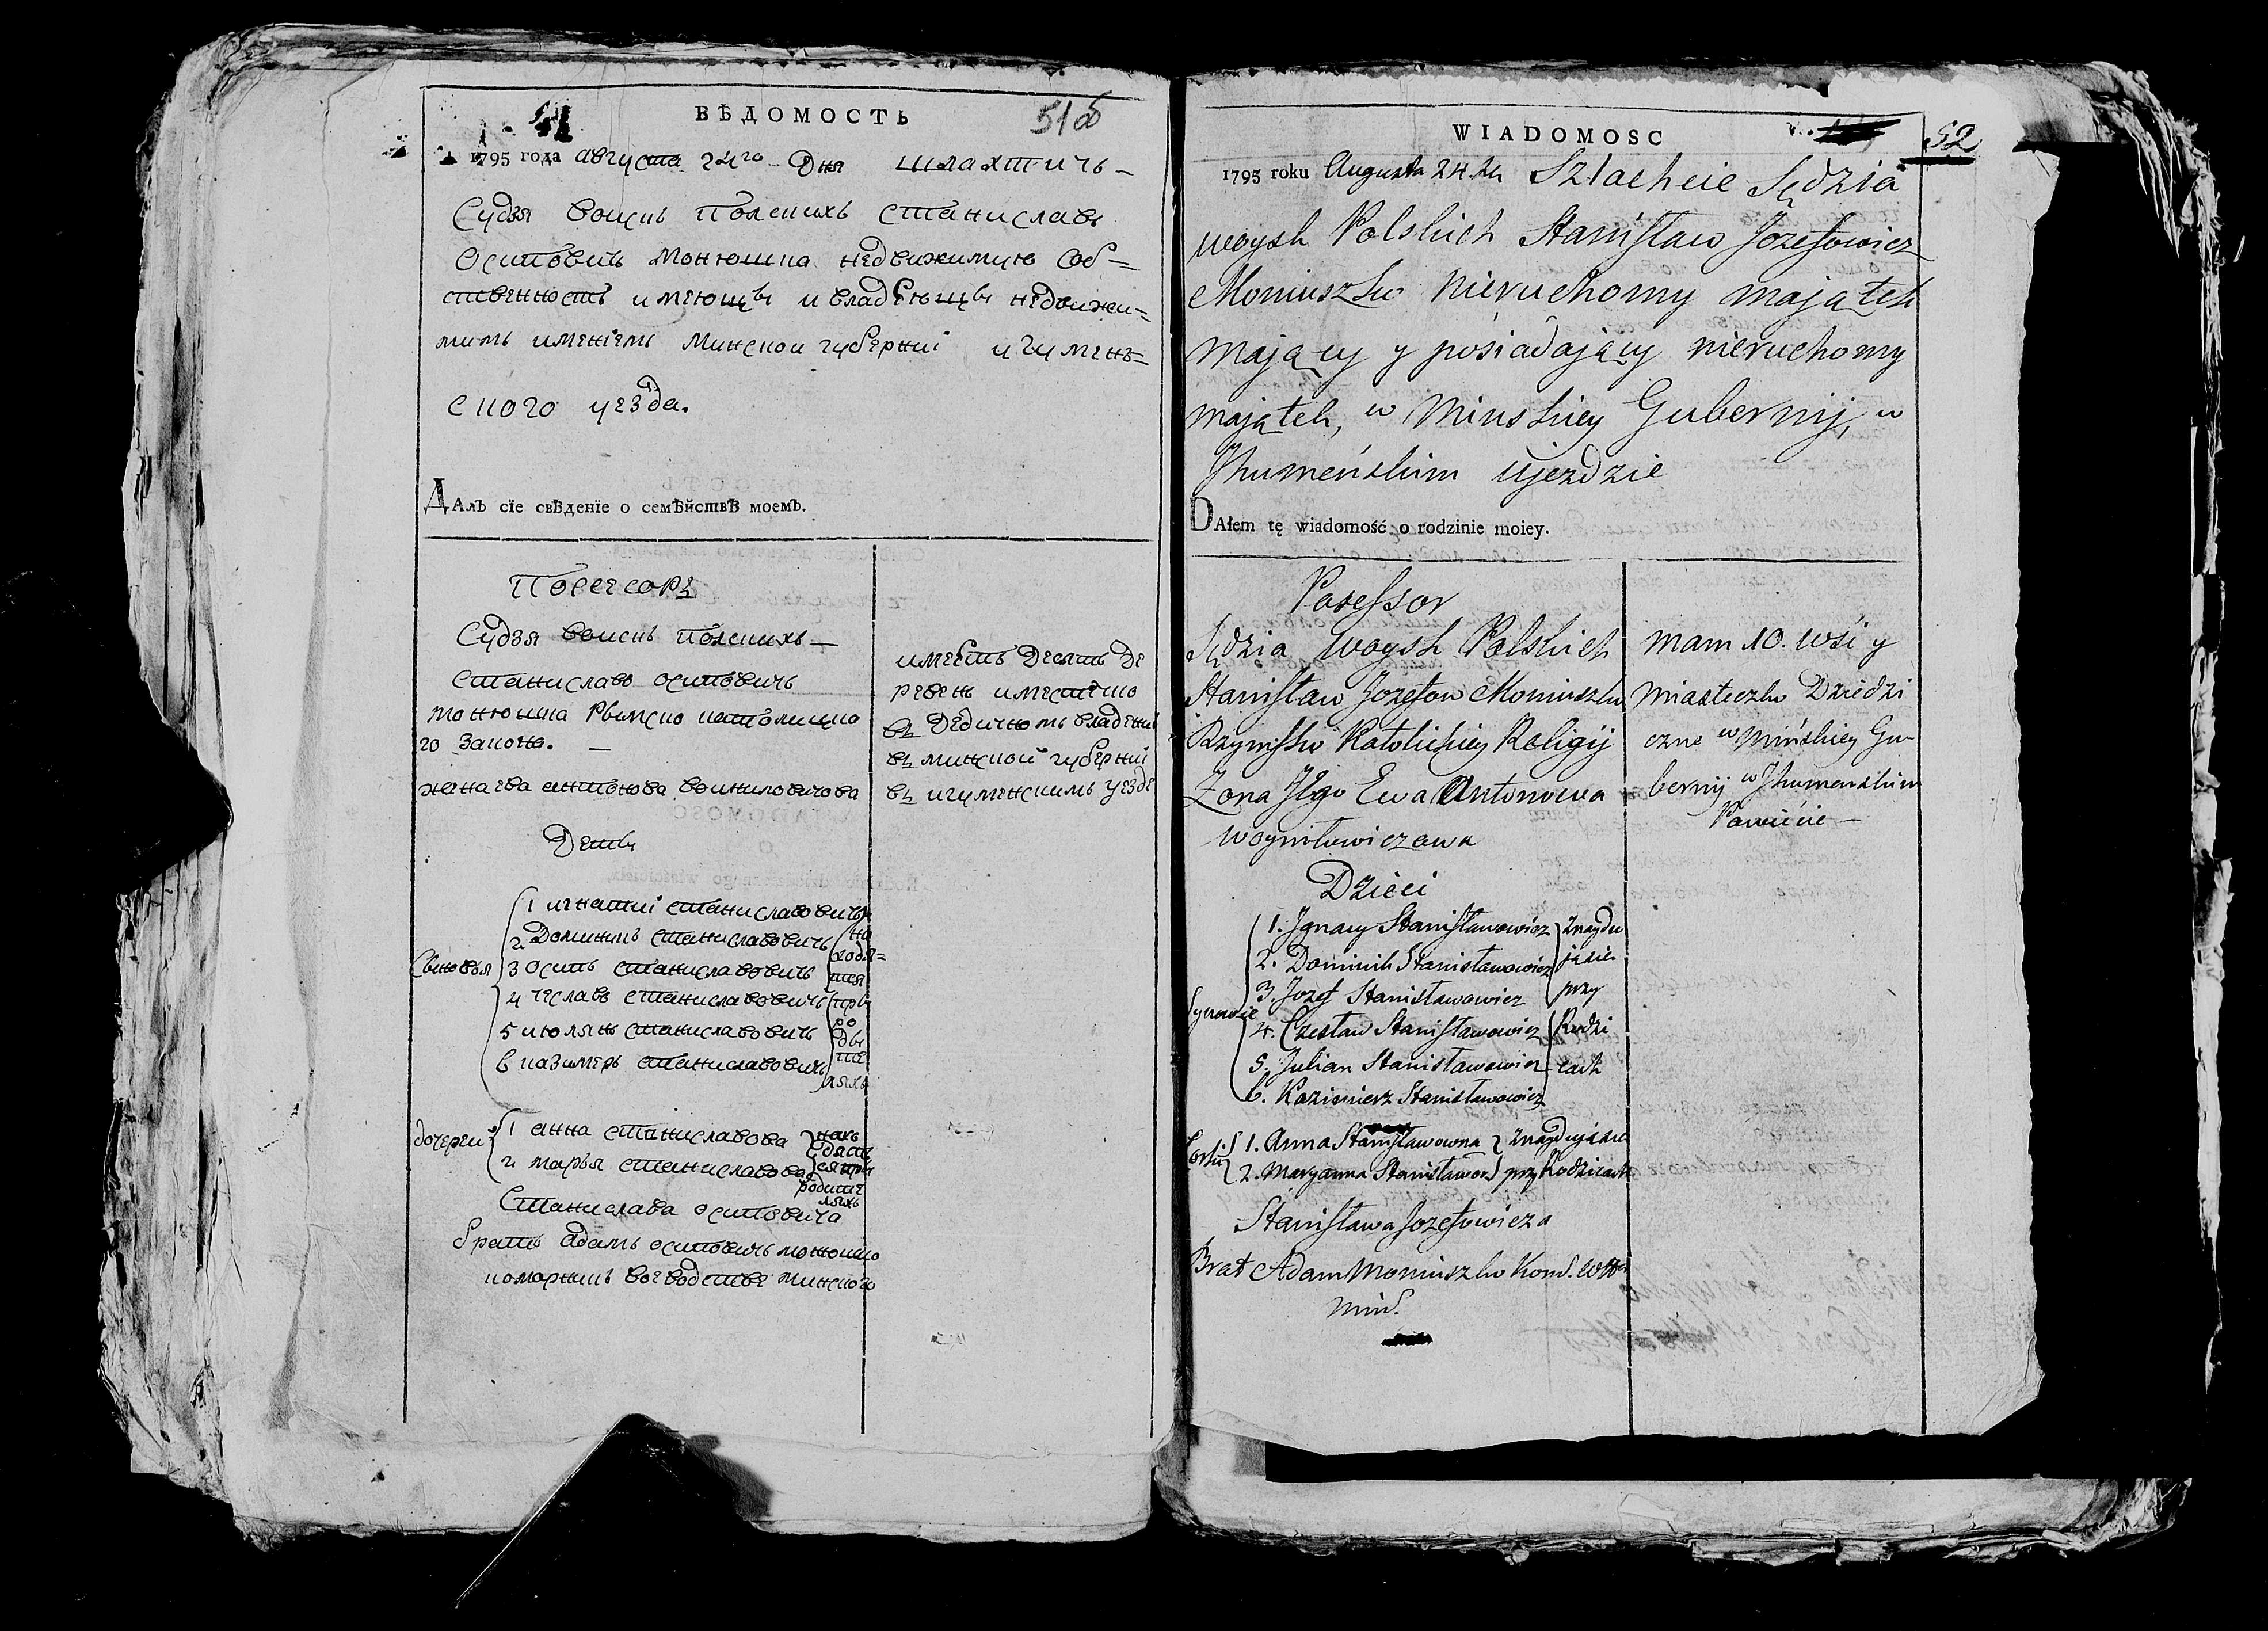 ВѢДОМОСТЬ
51об
1795 года августа 24го дня шляхтичь
Судзя воискъ полскихъ Станиславъ
Осиповичь Монюшка недвижимую соб=
ственность имеющы и владеющы недвижи=
мимъ имениемъ Минскои губернии игумен=
ского уезда.
ДАлъ сїе свѣденїе о семѣйствѣ моемъ.
Посесоръ
Судзя воискъ полскихъ
Станиславъ Осиповичь
Монюшка Рымско католицко
го закона.
жена ева антонова воиниловичова
Деты
Сыновья
1 игнатиі Станиславовичь
2 Доминикъ Станиславовичь
3 Осипъ Станиславовичь
4 Чеславъ Станиславовичь
5 июлянъ Станиславовичь
6 казимеръ Станиславовичь
на
ходя=
тся
пры
ро
ды
те
ляхъ
дочереи
1 анна Станиславова
2 марья Станиславова
нахо
дятъ
ся при
родите
ляхъ
Станислава Осиповича
братъ Адамъ Осиповичь монюшко
коморникъ воеводстве минского
имеетъ десять де
ревень и местечко
въ Дедичномъ владении
въ минской губернии
въ игуменскимъ уезде
WIADOMOSC
52
1795 roku Augusta 24. dn Szlachcic Sędzia
woysk Polskich Stanisław Jozefowicz
Moniuszko nieruchomy maiątek
mający y posiadający nieruchomy
majątek, w Minskiey Gubernij, w
Jhumeńskim ujezdzie
DAłem tę wiadomość o rodzinie moiey.
Posessor
Sędzia woysk Polskich
Stanisław Jozefow Moniuszko
Rzymsko Katolickiey Religij
Zona Jego Ewa Antonowa
Woyniłowiczowa
Dzieci
Synowie
1. Jgnacy Stanisławowicz
2. Dominik Stanisławowicz
3. Jozef Stanisławowicz
4. Czesław Stanisławowicz
5. Julian Stanisławowicz
6. Kazimierz Stanisławowicz
znaydu
ją się
przy
Rodzi
cach
Corki
1. Anna Stanisławowna
2. Maryanna Stanisławow
znaydują się
przy Rodzicach
Stanisława Jozefowicza
Brat Adam Moniuszko Kom. Wtt
Min.
mam 10. wśi y
miasteczko Dziedzi
czne w Mińskiey Gu
bernij w Jhumenskim
Powiecie